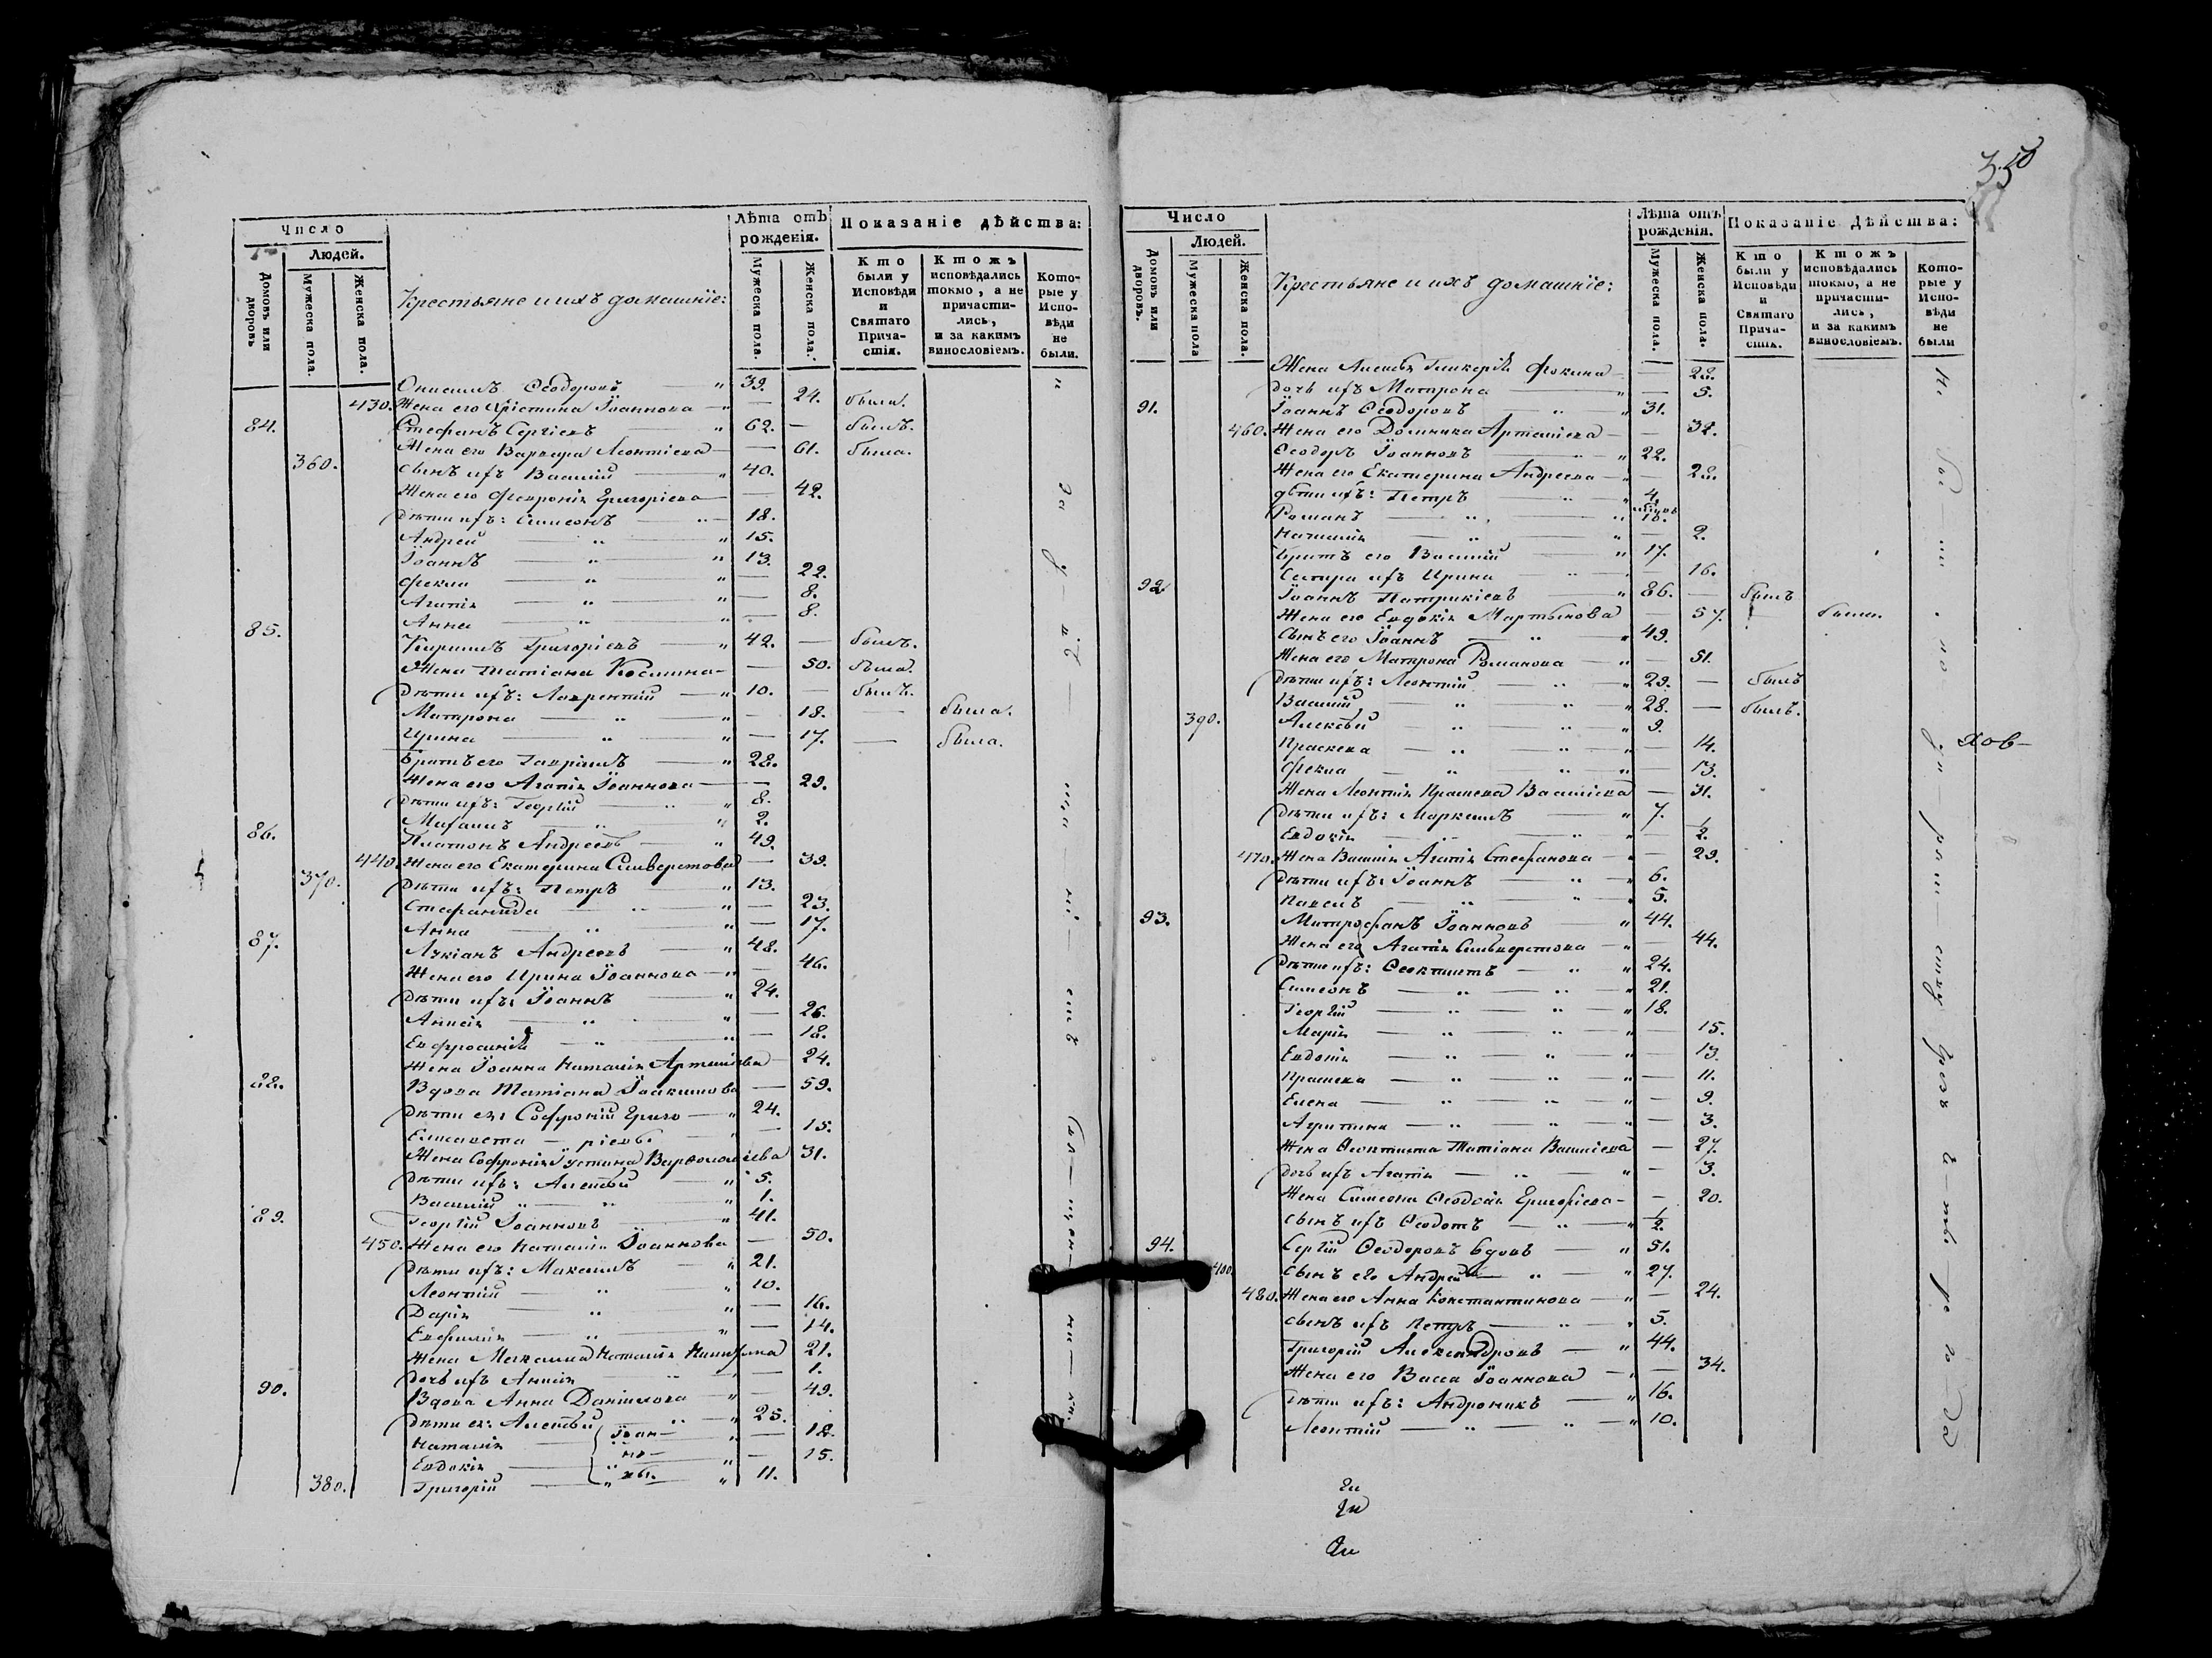 350
Число
Людей.
Домовъ или дворовъ
Мужеска пола.
Женска пола.
Крестьяне и ихъ домашніе:
Лѣта отъ рожденія.
Мужеска пола.
Женска пола.
Показаніе дѣйства:
Кто были у Исповѣди и Святаго Прича-стія.
Ктожъ исповѣдались токмо, а не причасти-лись, и за какимъ винословіемъ.
Кото-рые у Испо-вѣди не были.
Онисимъ Ѳеодоровъ — " 39.
430. Жена его Христина Іоаннова — 24. была.
84. Стефанъ Сергіевъ — " 62. — былъ.
Жена его Варвара Леонтіева — 61. была.
360. сынъ ихъ Василій — " 40.
Жена его Феѵронія Григоріева — 42.
Дѣти ихъ: Симеонъ — 18.
Андрей — " 15.
Іоаннъ — " 13.
Фекла — " — 22.
Агапія — " — 8.
Анна — " — 8.
85. Кирилъ Григоріевъ — " 42. — былъ.
Жена Татіана Космина — 50. была.
Дѣти ихъ: Лаврентій — " 10. — былъ.
Матрона — " — 18. — была.
Ирина — " — 17. — была.
Братъ его Гавріилъ — " 28.
Жена его Агапія Іоаннова — 29.
Дѣти ихъ: Георгій — " 8.
Михаилъ — " 2.
86. Платонъ Андреевъ — " 49.
440. Жена его Екатерина Сильверстова — 39.
370. Дѣти ихъ: Петръ — " 13.
Стефанида — " — 23.
Анна — " — 17.
87. Лукіанъ Андреевъ — " 48.
Жена его Ирина Іоаннова — " — 46.
Дѣти ихъ: Іоаннъ — " 24.
Анисія — " — 26.
Евфросинія — " — 18.
Жена Іоанна Наталія Артеміева 24.
88. Вдова Татіана Іоакимова — 59.
Дѣти ея: Софроній Григо — " 24.
Елисавета — ріевы — 15.
Жена Софронія Іустина Варѳоломеева 31.
Дѣти ихъ: Алексѣй — " 5.
Василій " — 1.
89. Георгій Іоанновъ — " 41.
450. Жена его Наталія Іоаннова — 50.
Дѣти ихъ: Максимъ — " 21.
Леонтій — " 10.
Дарія — " — 16.
Евфимія — " — 14.
Жена Максима Наталія 21.
дочь ихъ Анисія — 1.
90. Вдова Анна Даніилова — " — 49.
Дѣти ея: Алексѣй — " 25.
Наталія — Іоан — " — 18.
Евдокія — но — " — 15.
380. Григорій — вы. — " 11.
Число
Людей.
Домовъ или дворовъ.
Мужеска пола
Женска пола.
Крестьяне и ихъ домашніе:
Лѣта отъ рожденія.
Мужеска пола.
Женска пола.
Показаніе Дѣйства:
Кто были у Исповѣди и Святаго Прича-стія.
Ктожъ исповѣдались токмо, а не причасти-лись, и за какимъ винословіемъ.
Кото-рые у Испо-вѣди не были
Жена Алексѣя Гликерія Фокина — 28.
Дочь ихъ Матрона — " — 5.
91. Іоаннъ Ѳеодоровъ — " 31.
460. Жена его Домника Артеміева — 32.
Ѳеодоръ Іоанновъ — " 22.
Жена его Екатерина Андреева — 28.
дѣти ихъ: Петръ — " 4.
Романъ — " 10.
Наталія — " — 2.
Братъ его Василій — " 17.
Сестра ихъ Ирина — 16.
92. Іоаннъ Патрикіевъ — " 86. — былъ
Жена его Евдокія Мартынова — 57. была.
Сынъ его Іоаннъ — " 49.
Жена его Матрона Романова — " — 51.
Дѣти ихъ: Леонтій — " 29. — былъ
Василій — " 28. — былъ.
390. Алексѣй — " 9.
Праскева — " — 14.
Фекла — " — 13.
Жена Леонтія Праскева Василіева — 31.
Дѣти ихъ: Маркелъ — 7.
Евдокія — " — 1/2.
470. Жена Василія Агапія Стефанова — 29.
Дѣти ихъ: Іоаннъ — " 6.
Павелъ — " 5.
93. Митрофанъ Іоанновъ — " 44.
Жена его Агапія Сильверстова — " — 44.
Дѣти ихъ: Ѳеоктистъ — " 24.
Симеонъ — " 21.
Георгій — " 18.
Марія — " — 15.
Евдокія — " — 13.
Праскева — " — 11.
Елена — " — 9.
Агрипина — " — 3.
Жена Ѳеоктиста Татіана Василіева — 27.
дочь ихъ Агапія — " — 3.
Жена Симеона Ѳеодосія Григоріева — 20.
сынъ ихъ Ѳеодотъ — " 1/2.
94. Сергій Ѳеодоровъ вдовъ — " 51.
400. Сынъ его Андрей — " 27.
480. Жена его Анна Константинова — 24.
сынъ ихъ Петръ — 5.
Григорій Александровъ — " 44.
Жена его Васса Іоаннова — 34.
Дѣти ихъ: Андроникъ — " 16.
Леонтій — " 10.